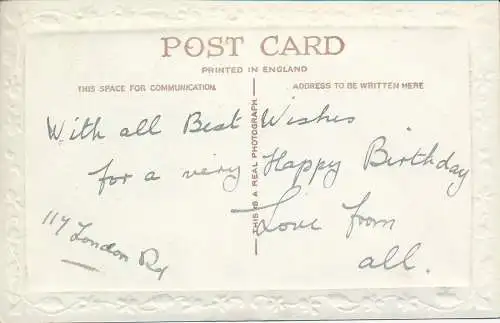 POST CARD
PRINTED IN ENGLAND
THIS SPACE FOR COMMUNICATION.
ADDRESS TO BE WRITTEN HERE
THIS IS A REAL PHOTOGRAPH.
With all Best Wishes
for a very Happy Birthday
Love from
all.
117 London Rd